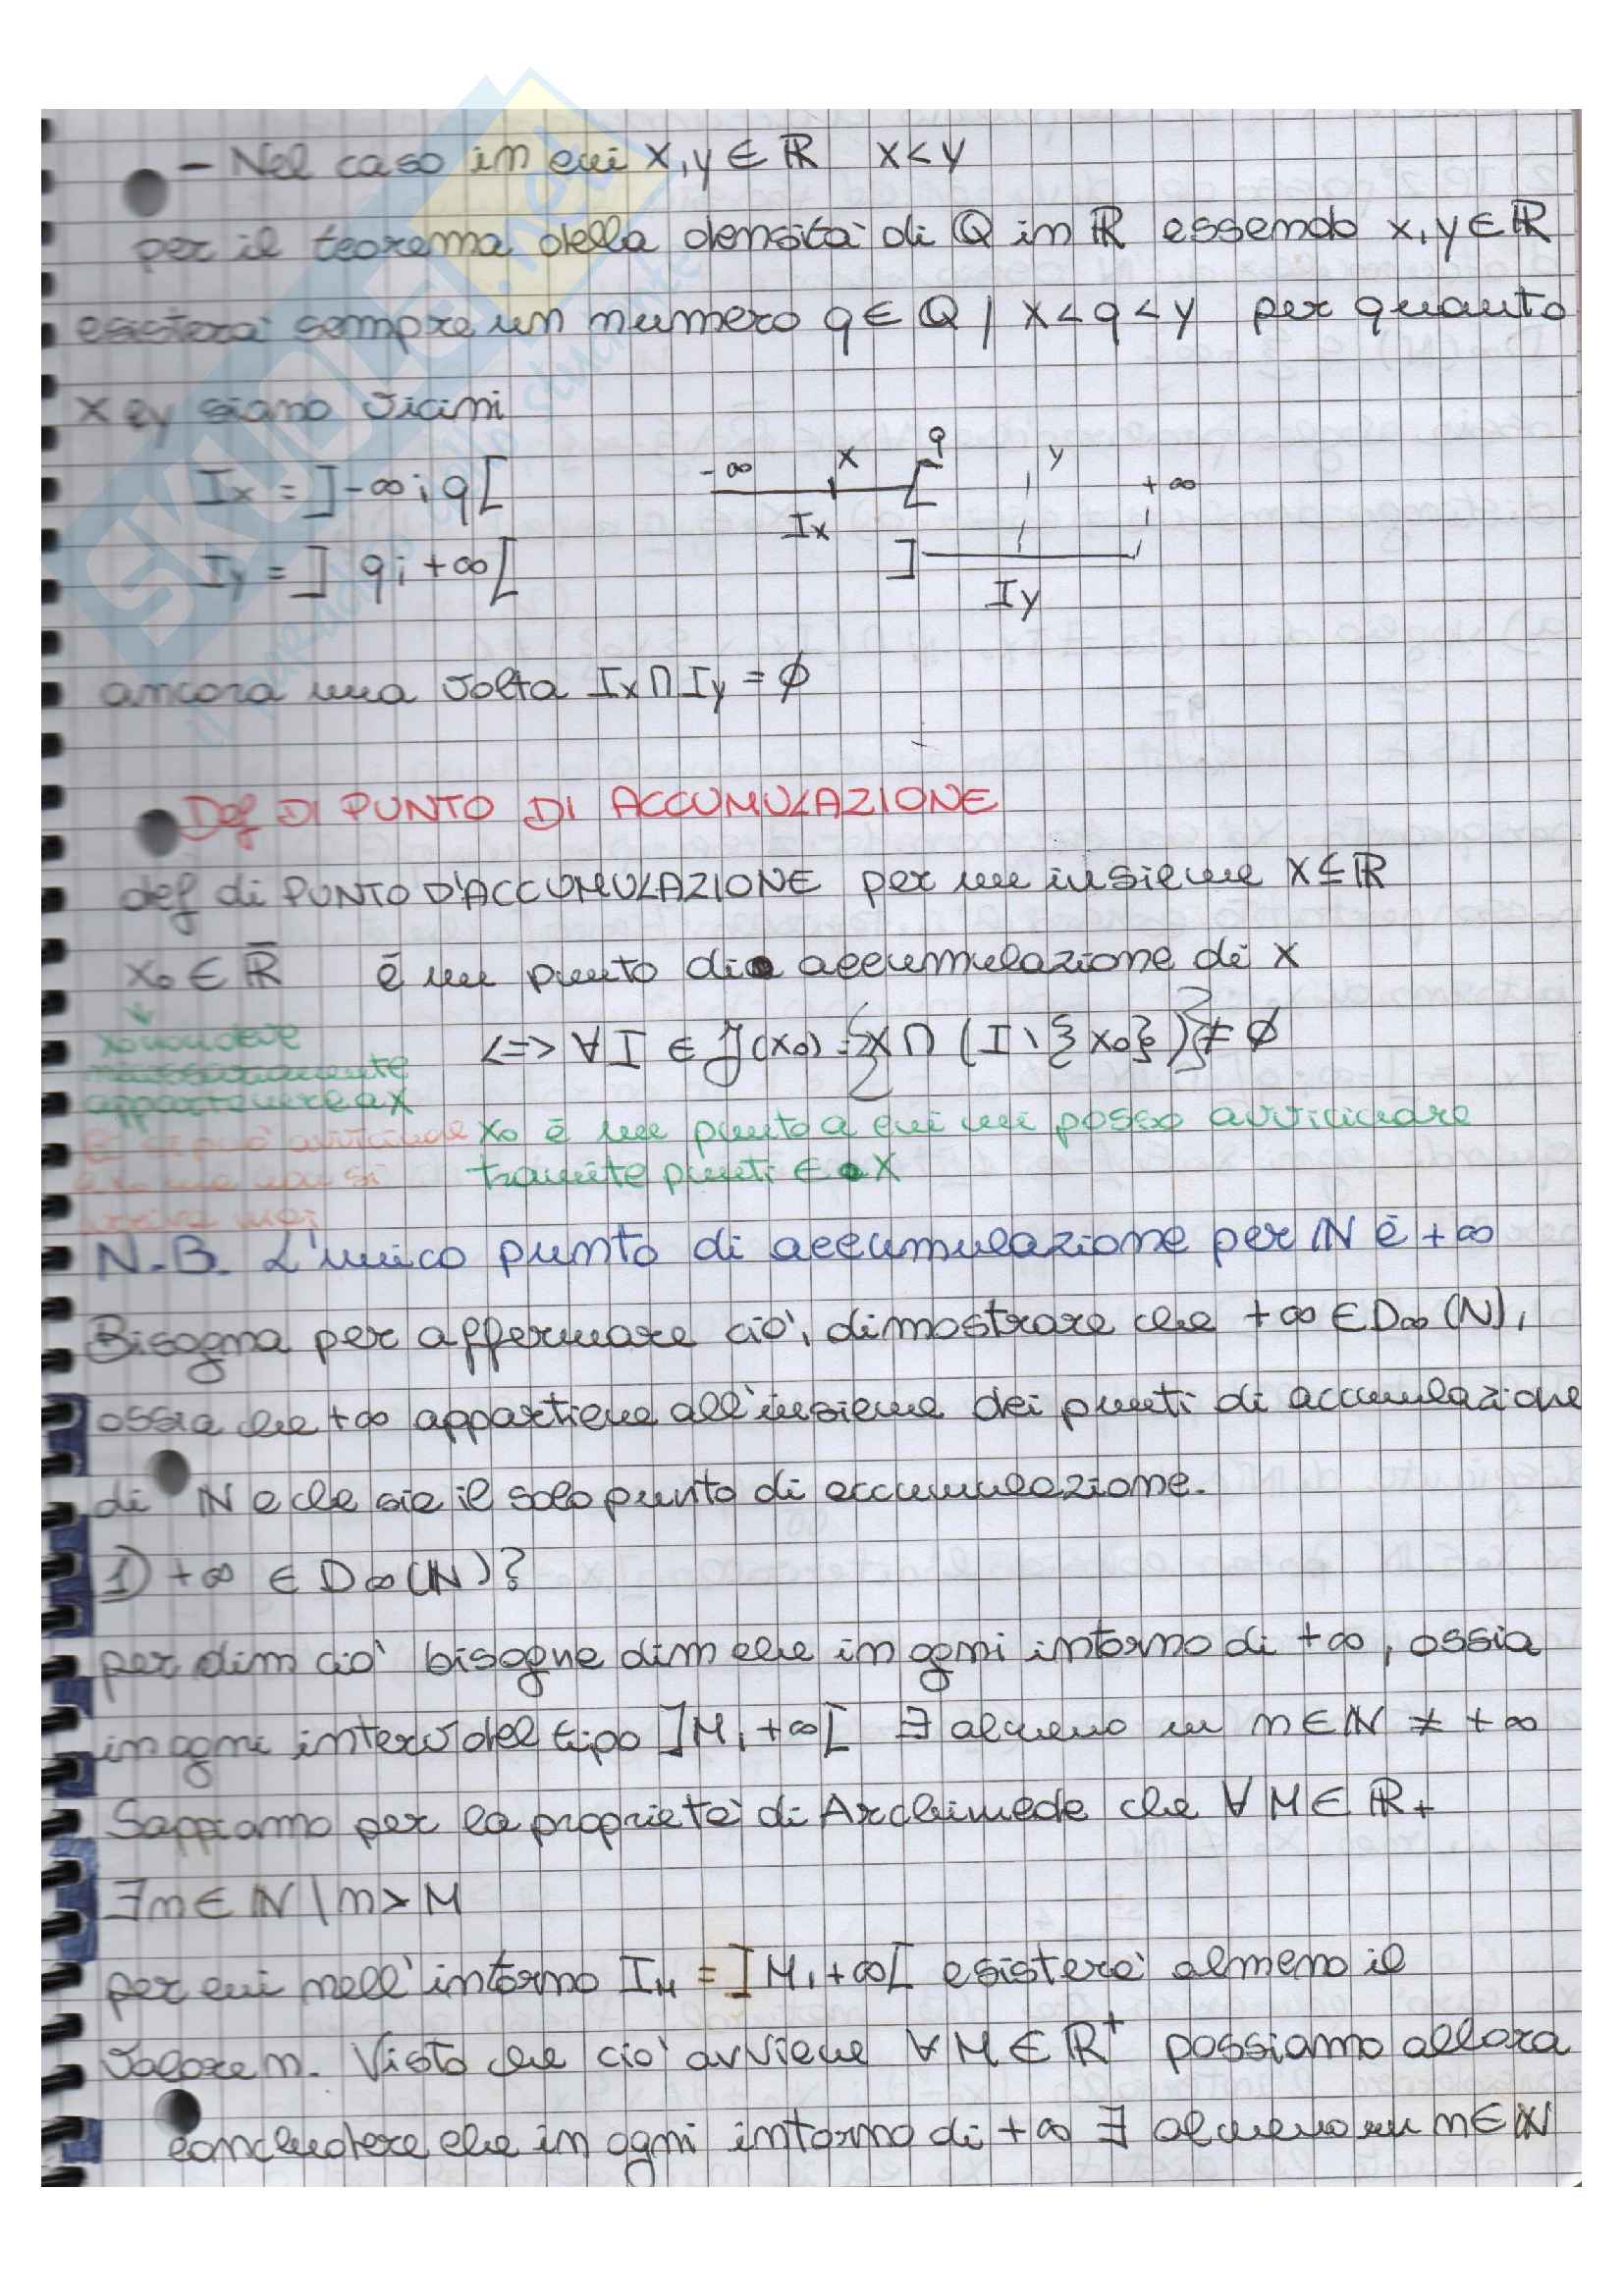 - Nel caso in cui x,y ∈ ℝ x<y
per il teorema della densità di ℚ in ℝ essendo x,y ∈ ℝ
esisterà sempre un numero q ∈ ℚ / x<q<y per quanto
x e y siano vicini
Ix = ]-∞; q[
Iy = ] q; +∞[
-∞ x q y +∞
Ix
Iy
ancora una volta Ix ∩ Iy = ∅
Def DI PUNTO DI ACCUMULAZIONE
def di PUNTO D'ACCUMULAZIONE per un insieme X ⊆ ℝ
x₀ ∈ ℝ̅ è un punto di accumulazione di X
<=> ∀ I ∈ J(x₀) : {X ∩ (I \ {x₀})} ≠ ∅
x₀ non deve
necessariamente
appartenere a X
E si può avvicinare
a x₀ ma non si
arriva mai
x₀ è un punto a cui mi posso avvicinare
tramite punti ∈ X
N.B. L'unico punto di accumulazione per ℕ è +∞
Bisogna per affermare ciò, dimostrare che +∞ ∈ D∞(N),
ossia che +∞ appartiene all'insieme dei punti di accumulazione
di N e che sia il solo punto di accumulazione.
1) +∞ ∈ D∞(ℕ)?
per dim ciò bisogna dim che in ogni intorno di +∞, ossia
in ogni interv del tipo ]M, +∞[ ∃ almeno un n ∈ ℕ ≠ +∞
Sappiamo per la proprietà di Archimede che ∀ M ∈ ℝ+
∃ n ∈ ℕ | n > M
per cui nell'intorno I_M = ]M, +∞[ esisterà almeno il
valore n. Visto che ciò avviene ∀ M ∈ ℝ⁺ possiamo allora
concludere che in ogni intorno di +∞ ∃ almeno un n ∈ ℕ
SKUOLA.net
il paradiso dello studente